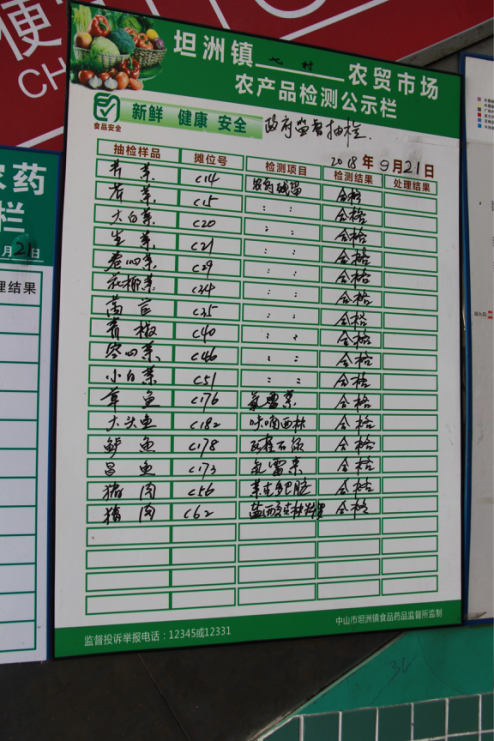 便
CH
坦洲镇 农贸市场
农产品检测公示栏
食品安全
新鲜 健康 安全
政府监督抽检
2018年9月21日
抽检样品 摊位号 检测项目 检测结果 处理结果
芥菜 C14 农药残留 合格
C15 : : 合格
大白菜 C20 : : 合格
生菜 C21 : : 合格
卷心菜 C29 : : 合格
C34 : : 合格
莴苣 C35 : : 合格
青椒 C40 : : 合格
空心菜 C46 : : 合格
小白菜 C51 : : 合格
草鱼 C176 氯霉素 合格
大头鱼 C182 呋喃西林 合格
鲈鱼 C178 孔雀石绿 合格
昌鱼 C173 氯霉素 合格
猪肉 C56 莱克多巴胺 合格
猪肉 C62 合格
监督投诉举报电话：12345或12331
中山市坦洲镇食品药品监督所监制
农药
栏
月21日
理结果